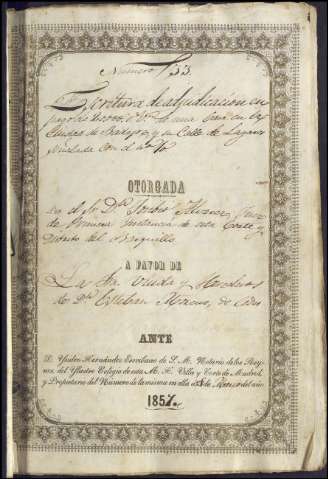 Número 133.
Escritura de adjudicación en
pago de de una casa en la
Ciudad de y su Calle de
señalada con el nº
OTORGADA
Por el Sr. Dn. Alvarez, Juez
de primera instancia de esta Corte y
distrito del Barquillo
A FAVOR DE
La Sra. Viuda y Herederos
de Dn. Esteban de
ANTE
D. Ysidro Hernández Escribano de S. M. Notario de los Rey-
nos, del Yllustre Colegio de esta M. H. Villa y Corte de Madrid,
y Propietario del Número de la misma en ella á de Enero del año
1857.